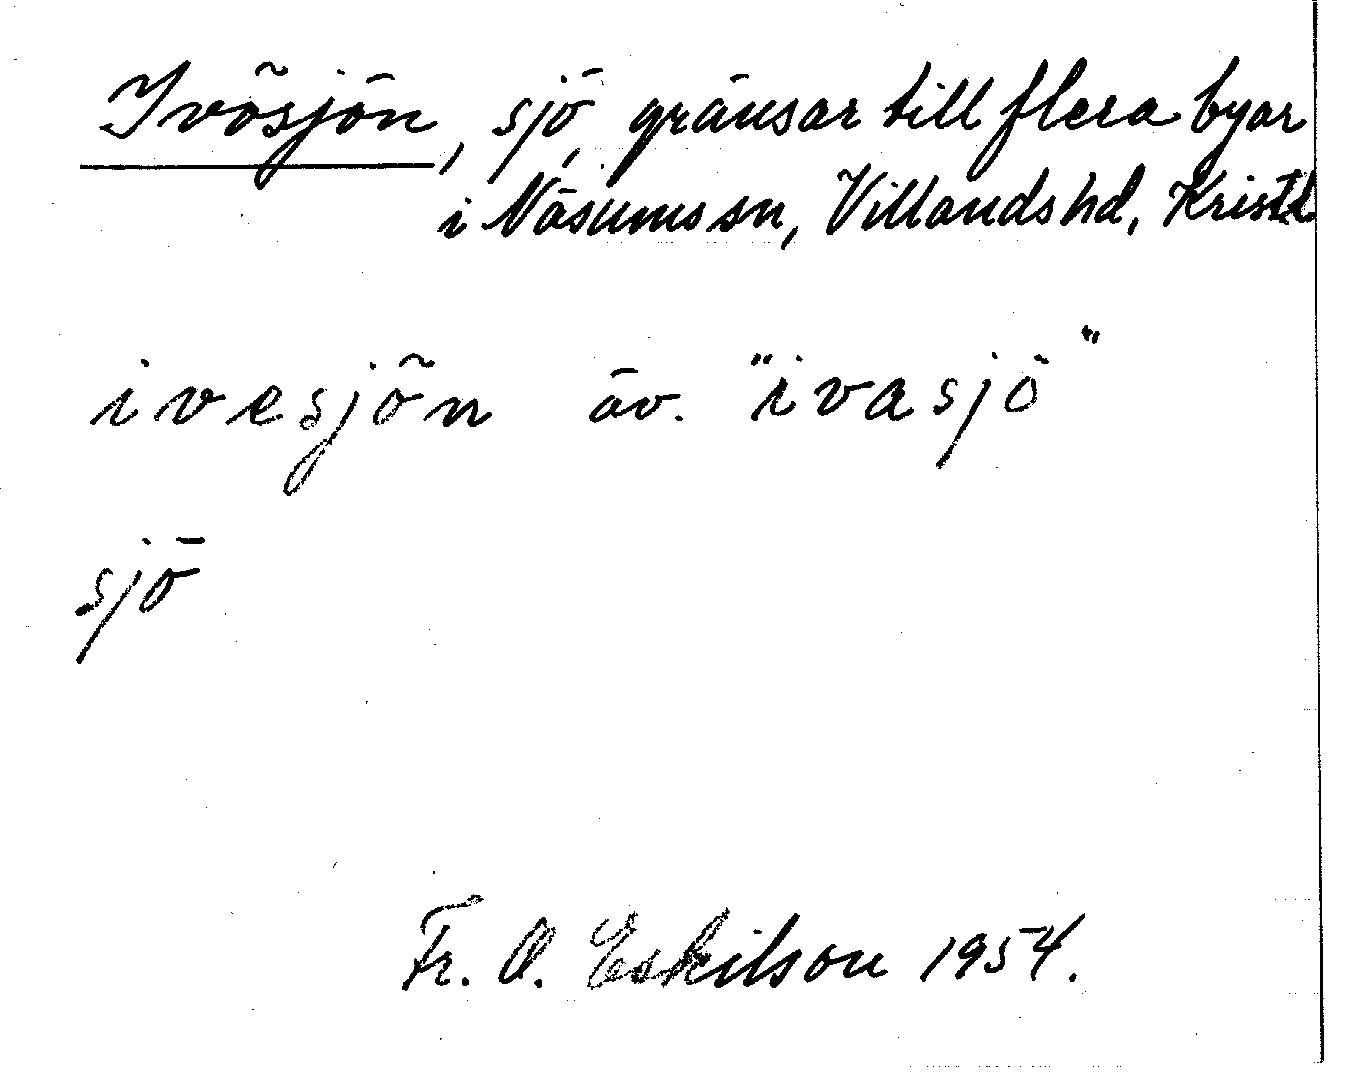 Ivösjön, sjö, gränsar till flera byar
i Näsums sn, Villands hd, Kristd
ivesjön äv. "ivasjö"
sjö
Fr. O. Eskilson 1954.